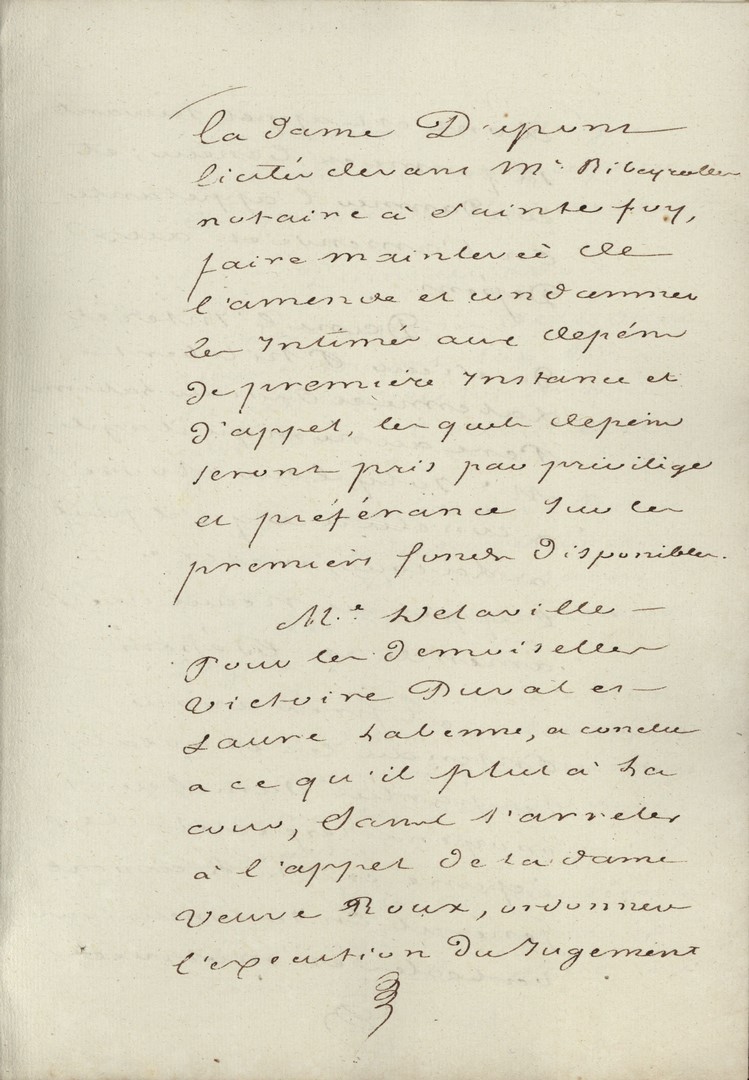 la dame Dupont
licités devant Me. Ribeyrolles
notaire à Sainte foy,
faire mainlevée de
l'amende et condamner
les Intimés aux depens
de première Instance et
d'appel, lesquels depens
seront pris par privilège
et préférance sur les
premiers fonds disponibles.
Me. Delaville —
Pour les demoiselles
Victoire Duval et —
Laure Labenne, a conclu
a ce qu'il plut à La
cour, Sans s'arreter
à l'appel de la dame
Veuve Roux, ordonner
l'execution du Jugement